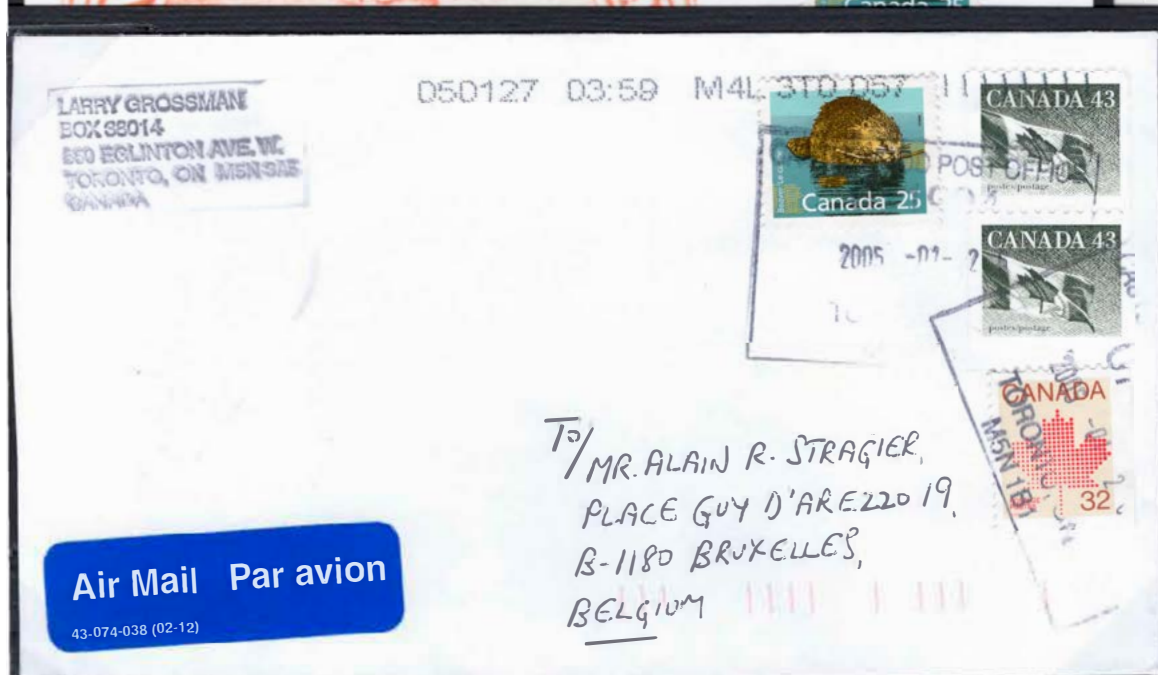 Canada 25
LARRY GROSSMAN
BOX 38014
550 EGLINTON AVE, W.
TORONTO, ON M5N 3A8
CANADA
050127 03:59 M4L 3T0 D57
Canada 25
POST OFFICE
2005 -01- 2
CANADA 43
postes/postage
CANADA 43
postes/postage
CANADA
32
TORONTO,
M5N 1B1
To/
MR. ALAIN R. STRAGIER,
PLACE GUY D'AREZZO 19,
B-1180 BRUXELLES,
BELGIUM
Air Mail Par avion
43-074-038 (02-12)